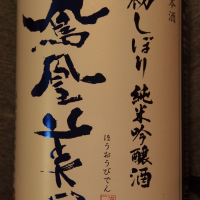 本酒
初しぼり
純米吟醸酒
鳳凰美田
ほうおうびでん